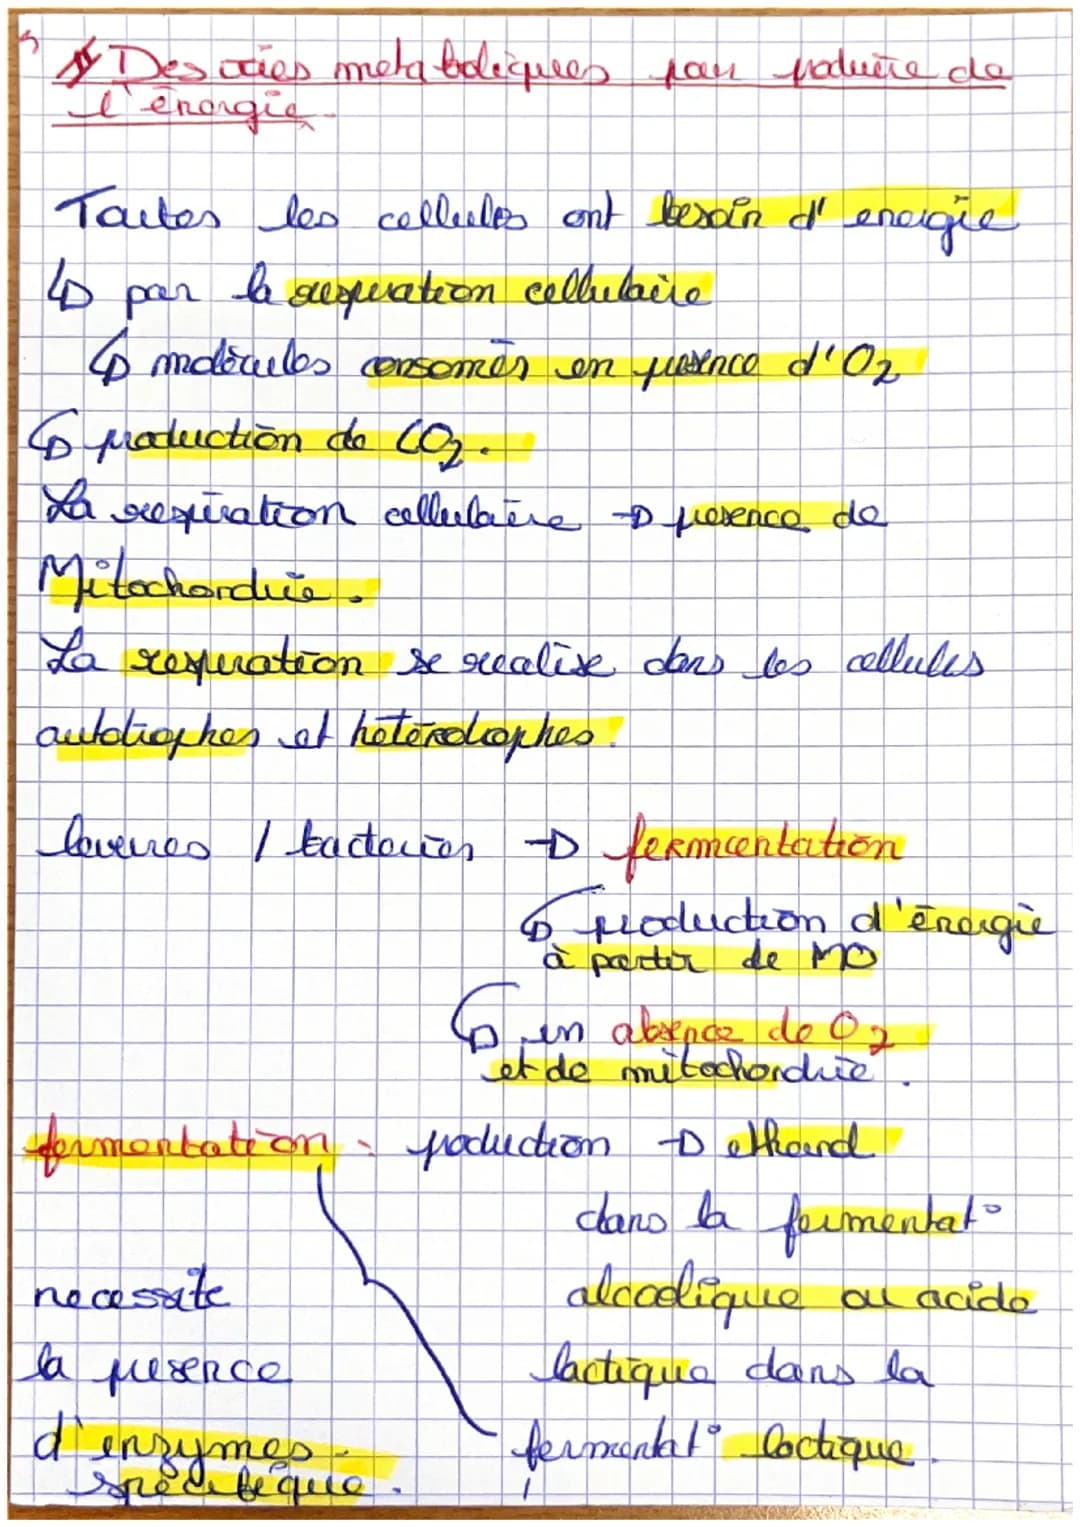 Des voies metaboliques pour produire de
l'énergie.
Toutes les cellules ont besoin d'energie
↳ par la respiration cellulaire
↳ molécules consomés en presence d'O2
↳ production de CO2.
La respiration cellulaire → presence de
Mitochondrie.
La respiration se realise dans les cellules
autotrophes et hétérotrophes.
levures / bacteries → fermentation
↳ production d'énergie
à partir de MO
↳ en absence de O2
et de mitochondrie.
fermentation : production → ethanol
dans la fermentat°
necessite alcoolique ou acide
la presence lactique dans la
d'enzymes fermentat° lactique.
spécifique.